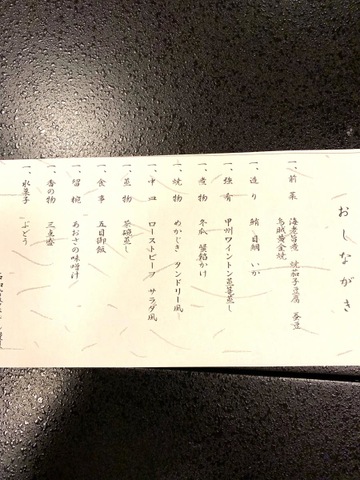 おしながき
一、前菜　海老旨煮　焼茄子豆腐　蚕豆
烏賊黄金焼
一、造り　鯖　目鯛　いか
一、強肴　甲州ワイントン蒸籠蒸し
一、煮物　冬瓜　蟹餡かけ
一、焼物　めかじき　タンドリー風
一、中皿　ローストビーフ　サラダ風
一、蒸物　茶碗蒸し
一、食事　五目御飯
一、留椀　あおさの味噌汁
一、香の物　三点盛
一、水菓子　ぶどう